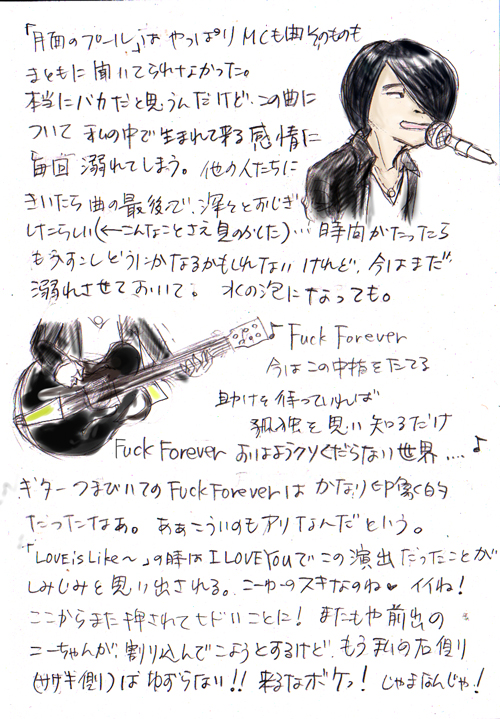 「月面のプール」は やっぱりMCも曲そのものも
まともに聞いてられなかった。
本当にバカだと思うんだけど、この曲に
ついて 私の中で生まれて来る感情に
毎回 溺れてしまう。他の人たちに
きいたら曲の最後で、深々とおじぎ
したらしい(←こんなことさえ見のがした)… 時間がたったら
もうすこしどうにかなるかもしれないけれど、今はまだ
溺れさせておいて。 水の泡になっても。
♪ Fuck Forever
今はこの中指をたてる
助けを待っていれば
孤独を思い知るだけ
Fuck Forever おはようクソくだらない世界…. ♪
ギターつまびいてのFuckForeverは かなり印象的
だったなあ。 ああこういのもアリなんだという。
「LOVE is Like〜」の時は I LOVE YOUで この演出だったことが
しみじみと思い出される。こーゆーのスキなのね♥ イイね!
ここからまた押されてヒドいことに! またもや前出の
ニーちゃんが、割り込んでこようとするけど、もう私の右側
(ササキ側)はゆずらない!! 来るなボケっ! じゃまなんじゃ!